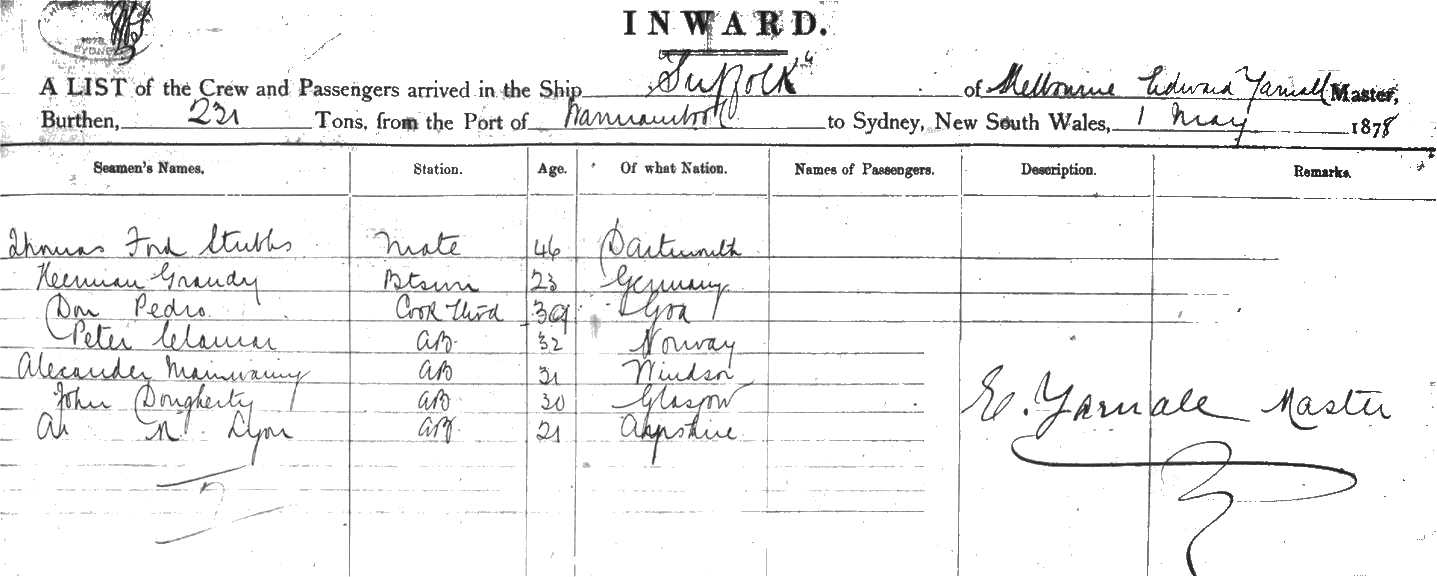 SYDNEY
INWARD.
A LIST of the Crew and Passengers arrived in the Ship "Suffolk" of Melbourne Edward Yarnall Master,
Burthen, 221 Tons, from the Port of to Sydney, New South Wales, 1 May 1878
Seamen's Names. Station. Age. Of what Nation. Names of Passengers. Description. Remarks.
Thomas Ford Stubbs Mate 46 Dartmouth
Herman Grandy Btswn 23 Germany
Don Pedro Cook & Std 39 Goa
Peter AB 32 Norway
Alexander Mainwaring AB 31 Windsor
John Dougherty AB 30 Glasgow
N Lyon AB 21
E. Yarnall Master